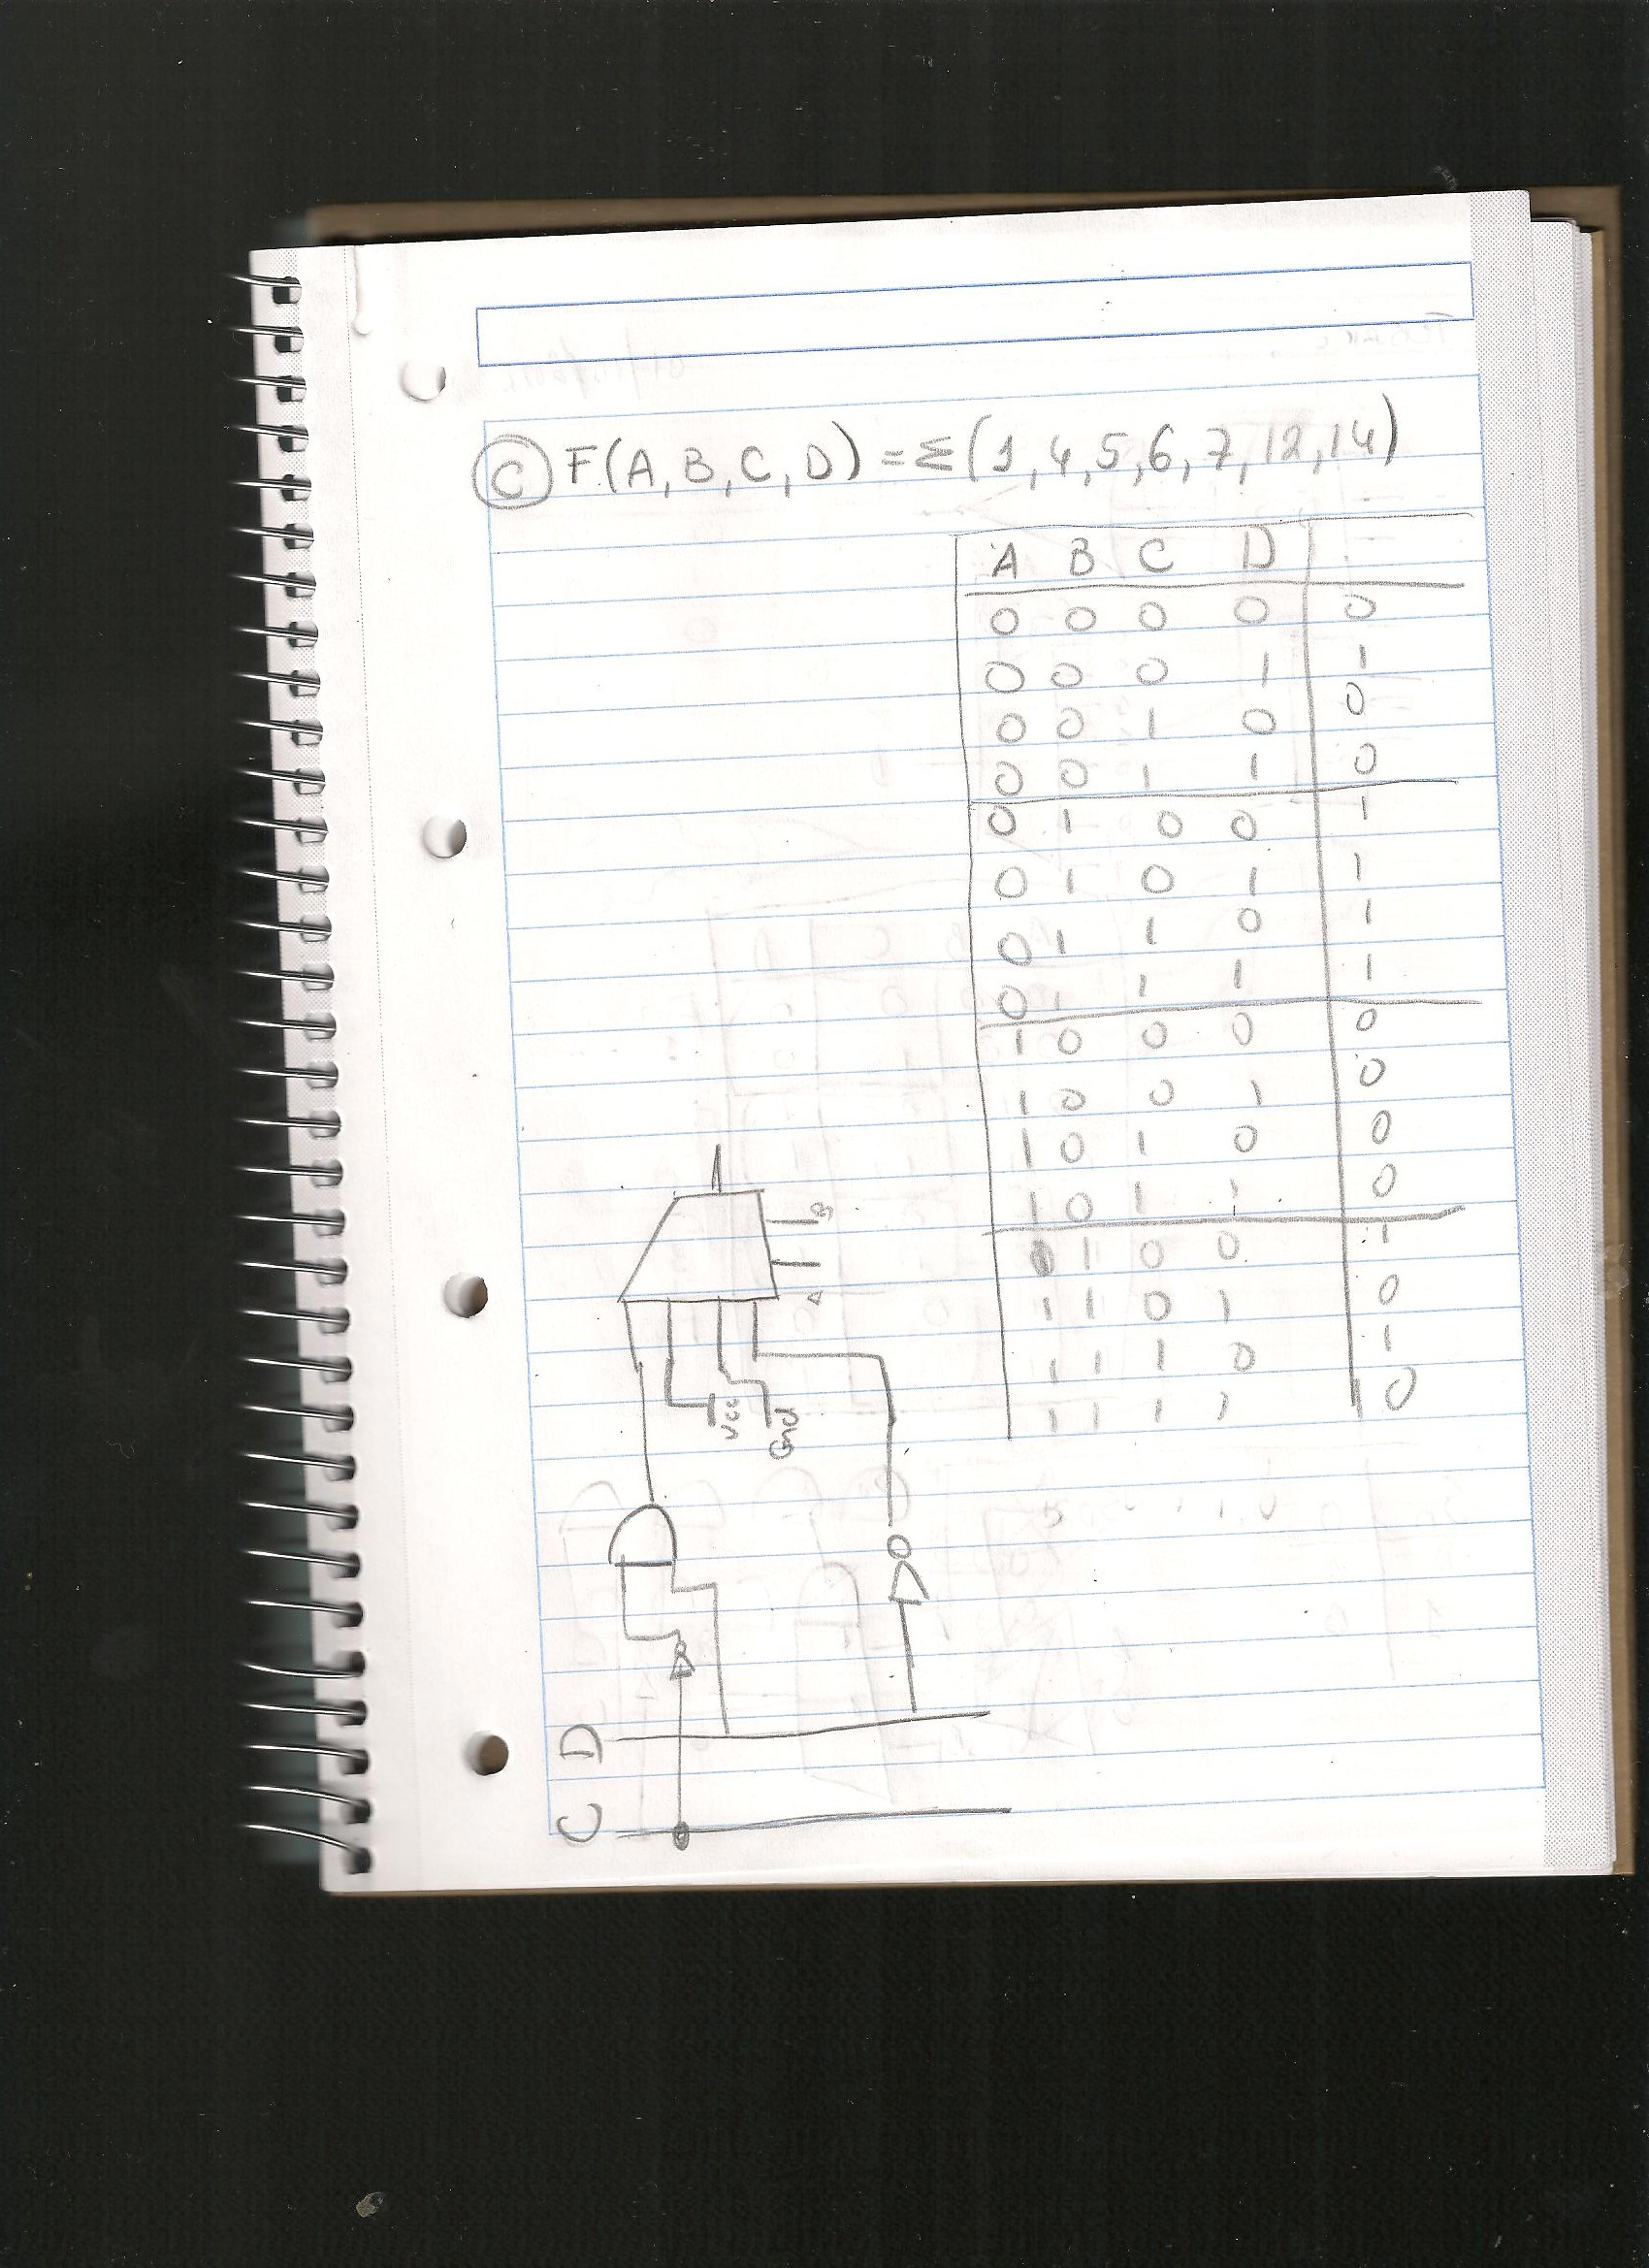 C F(A, B, C, D) = Σ(1, 4, 5, 6, 7, 12, 14)
A B C D
0 0 0 0 0
0 0 0 1 1
0 0 1 0 0
0 0 1 1 0
0 1 0 0 1
0 1 0 1 1
0 1 1 0 1
0 1 1 1 1
1 0 0 0 0
1 0 0 1 0
1 0 1 0 0
1 0 1 1 0
1 1 0 0 1
1 1 0 1 0
1 1 1 0 1
1 1 1 1 0
B
A
Vcc
Gnd
D
C